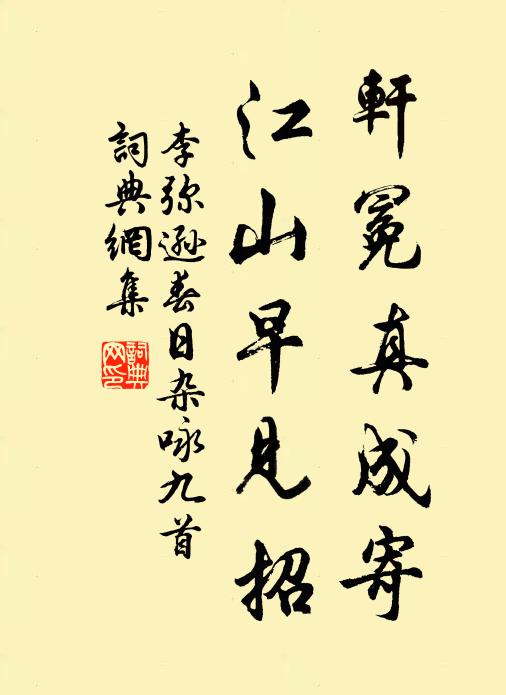 軒冕真成寄
江山早見招
李弥遜春日杂咏九首
詞典網集
詞典网印